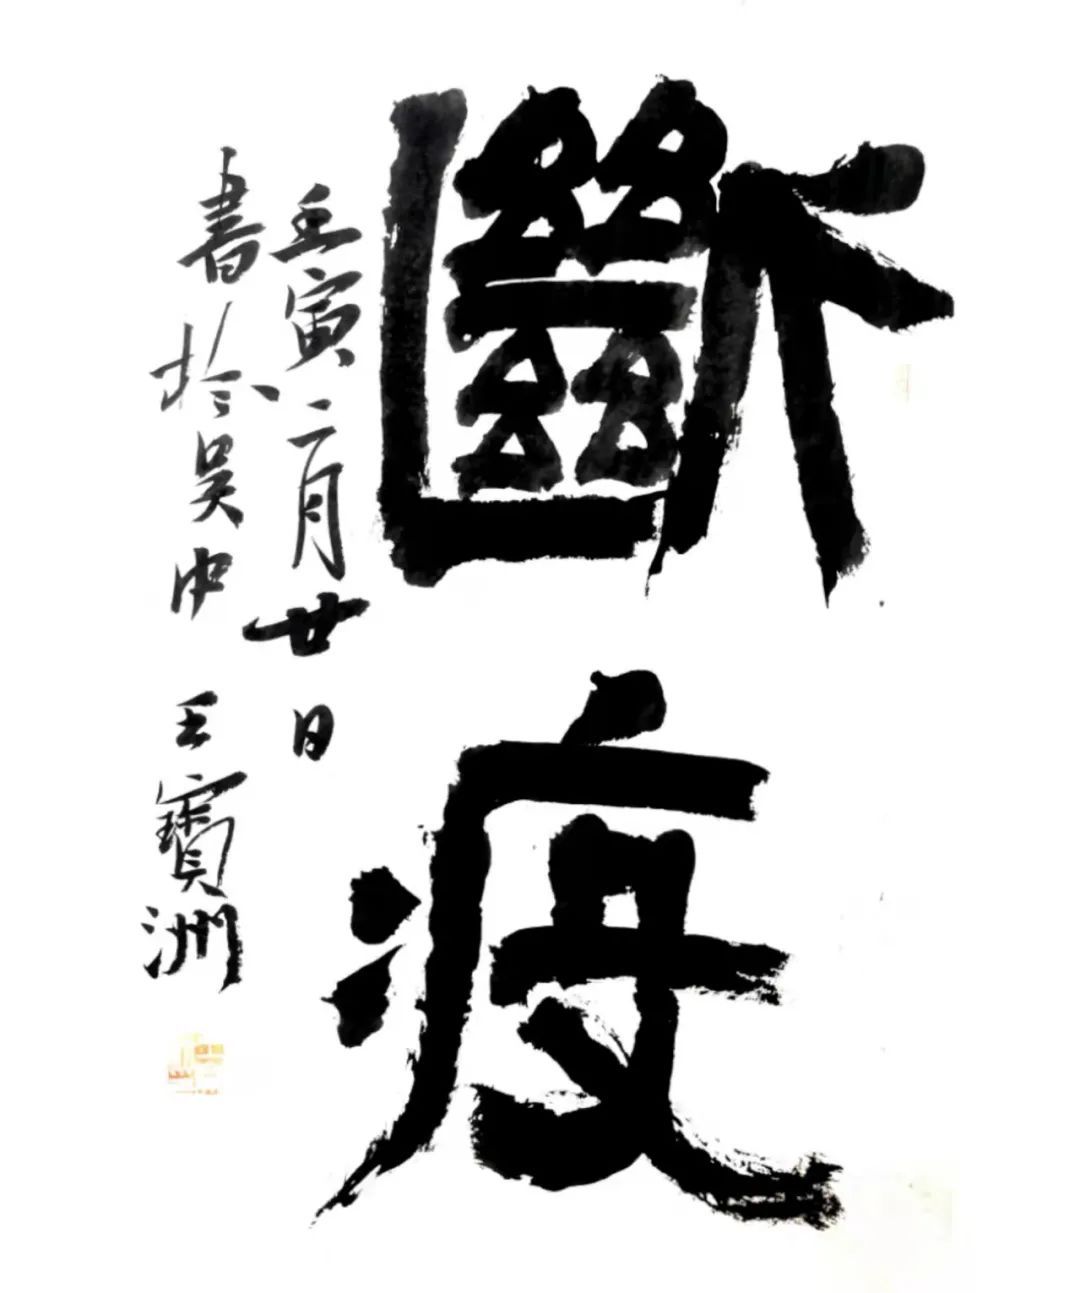 斷疫
壬寅二月廿日
書於吴中
王寶洲